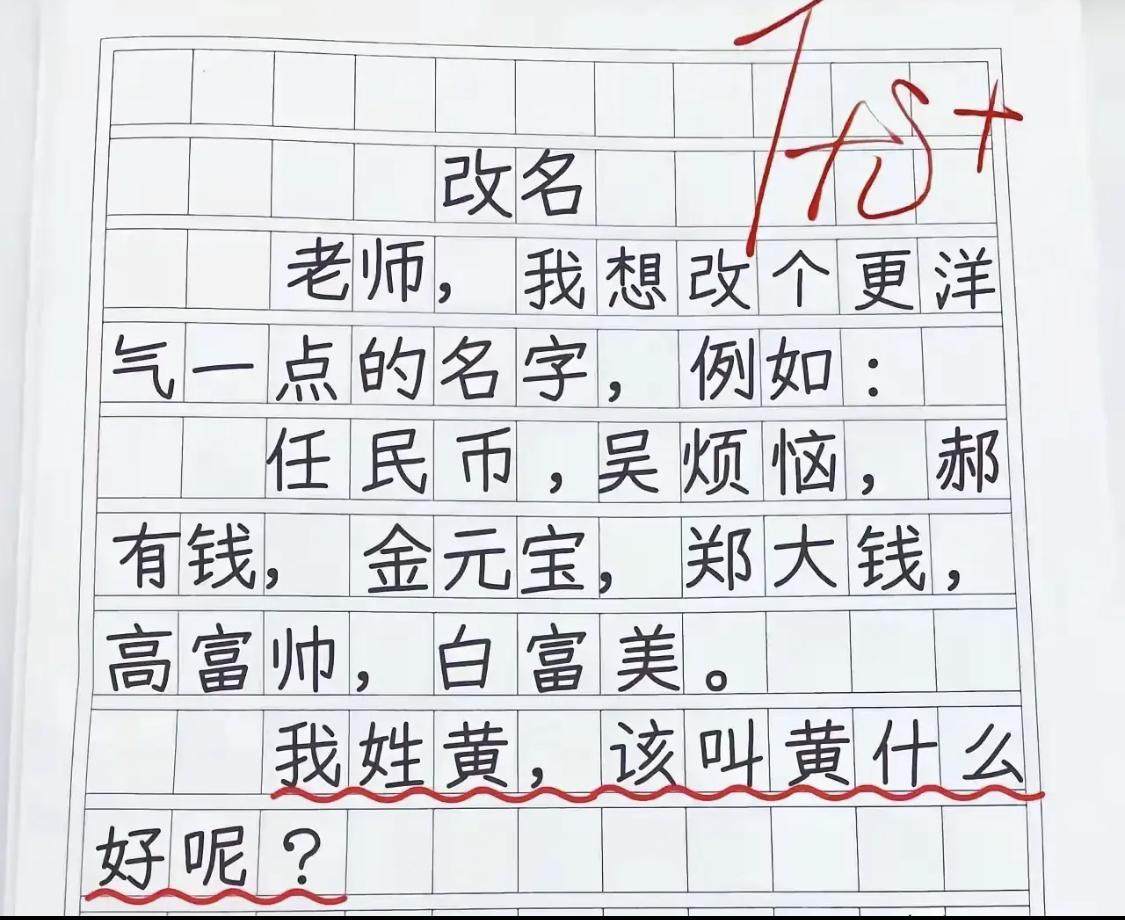 优+
改名
老师，我想改个更洋
气一点的名字，例如：
任民币，吴烦恼，郝
有钱，金元宝，郑大钱，
高富帅，白富美。
我姓黄，该叫黄什么
好呢？